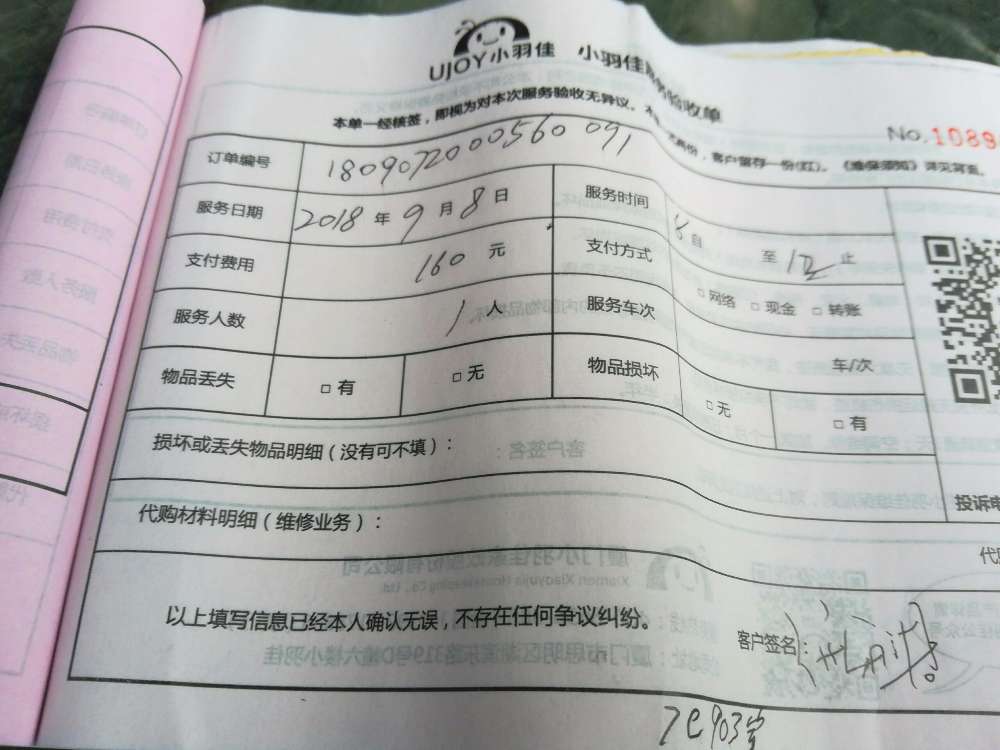 UJOY小羽佳 小羽佳服务验收单
本单一经核签，即视为对本次服务验收无异议。
No.1089
客户留存一份(红)。《维保须知》详见背面。
订单编号 1809072000560091
服务日期 2018年9月8日 服务时间 8自 至12止
支付费用 160元 支付方式 □网络 □现金 □转账
服务人数 1人 服务车次 年/次
物品丢失 □有 □无 物品损坏 □无 □有
损坏或丢失物品明细（没有可不填）：
投诉电
代购材料明细（维修业务）：
代购
以上填写信息已经本人确认无误，不存在任何争议纠纷。
客户签名：
7C903室